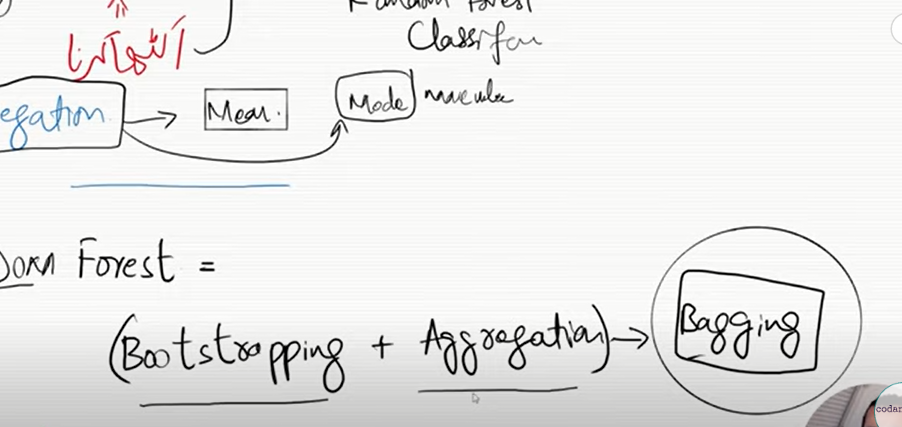 Random Forest
Classifier
اکٹھا کرنا
egation → Mean. Mode
Dom Forest =
(Bootstrapping + Aggregation) → Bagging
codan